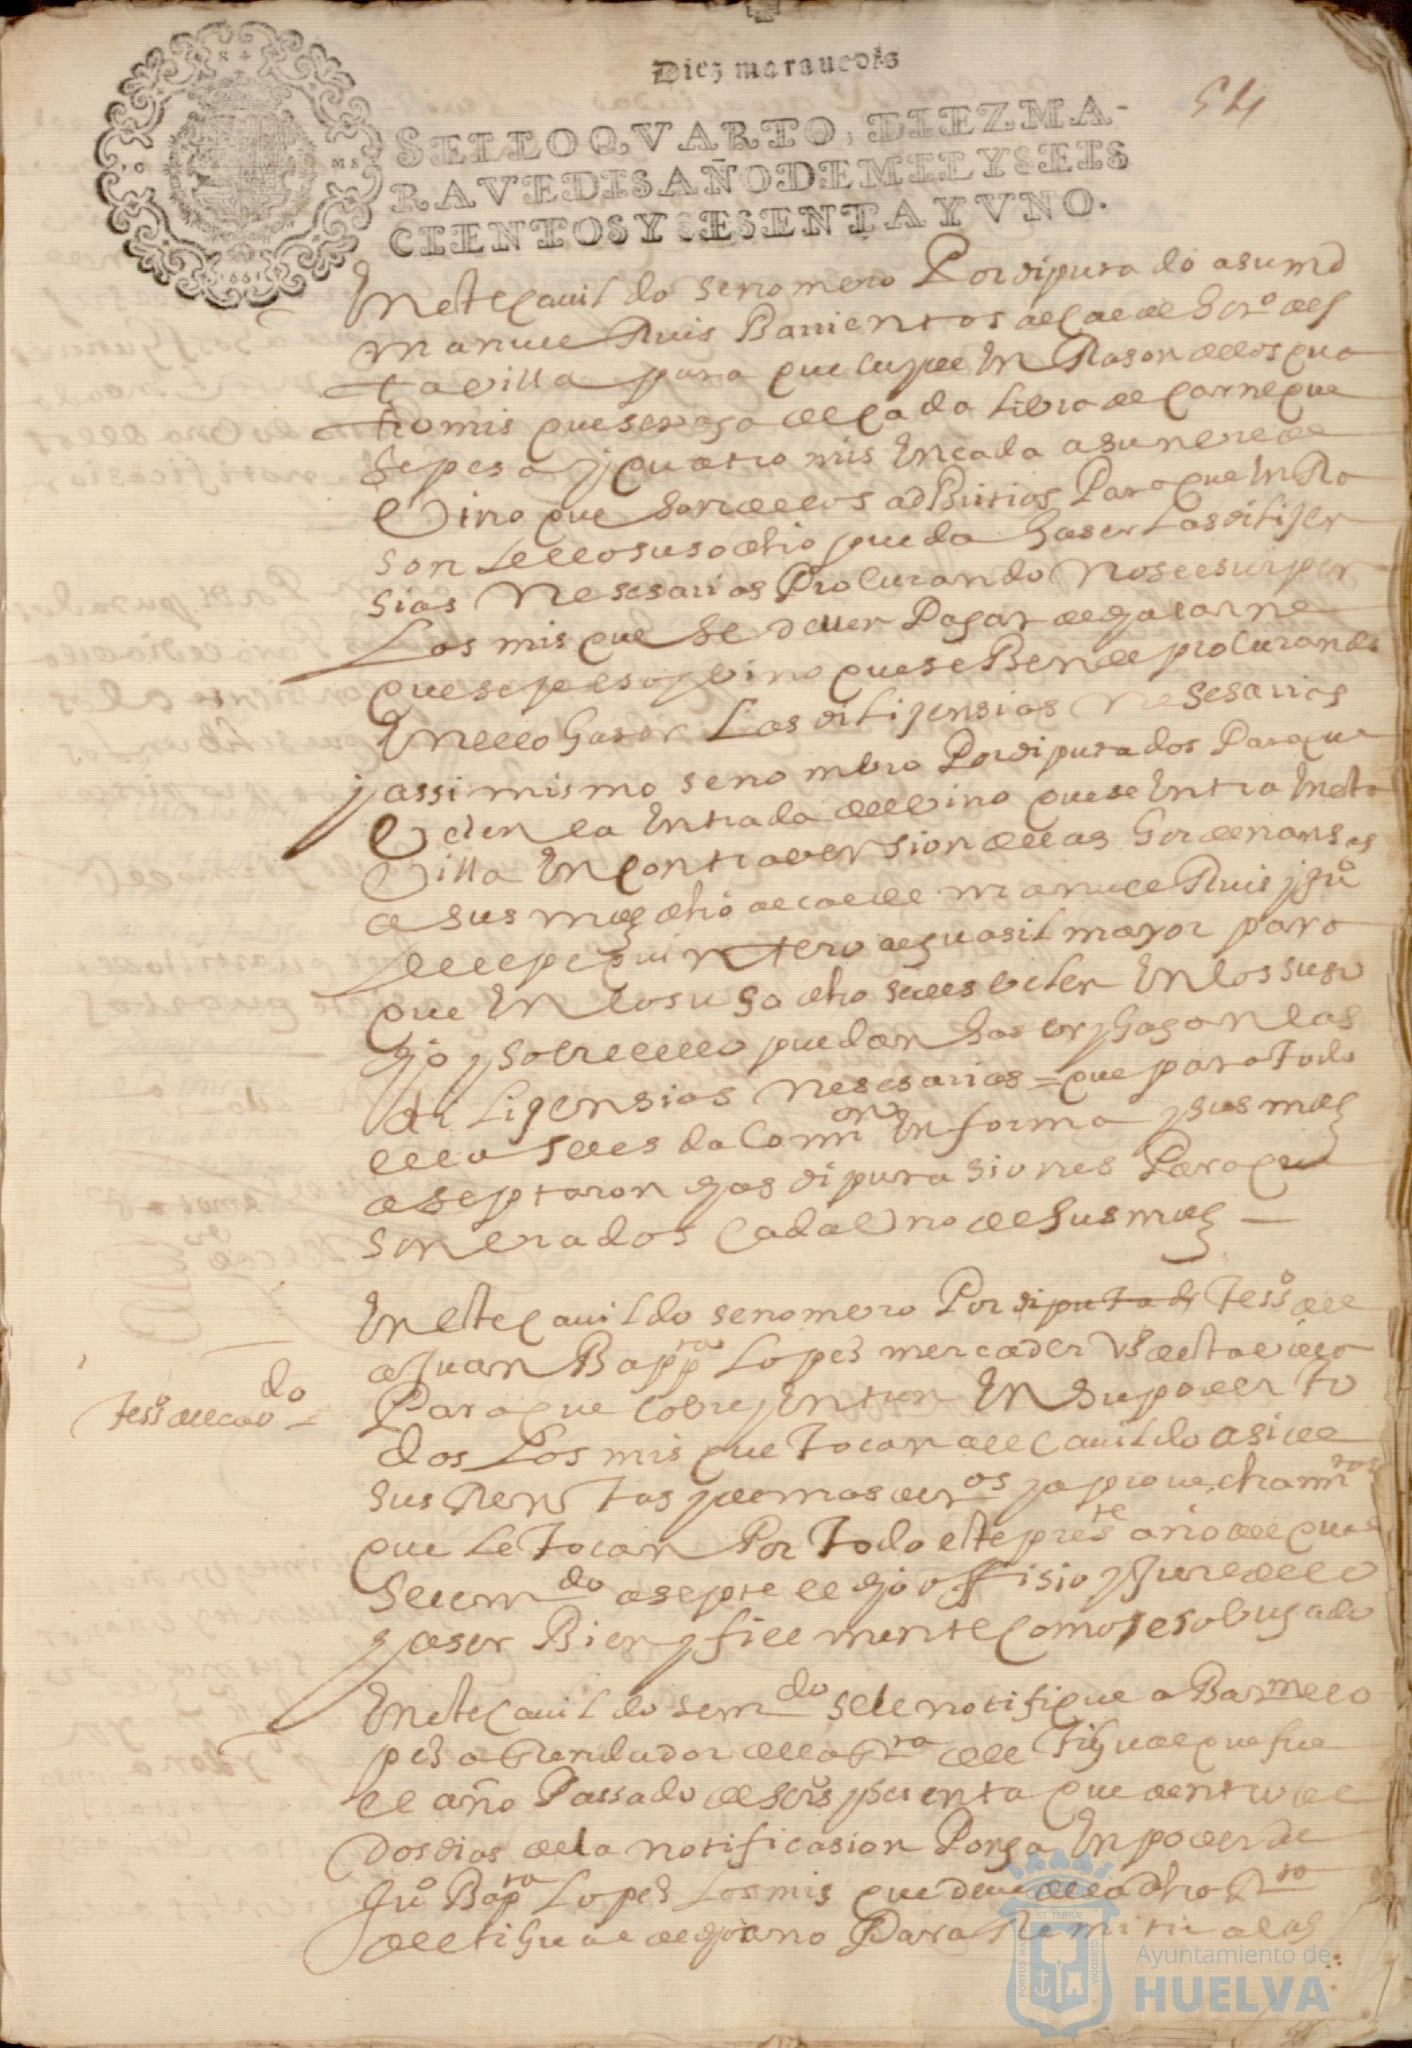 Diez maravedis
54
SELLO QVARTO, DIEZ MA-
RAVEDIS AÑO DE MIL Y SEIS
CIENTOS Y SESENTA Y VNO.
En este cauildo se nonbro Por diputado a su md
manuel Ruis Barrientos alcalde hor.o des
ta villa para que cuyde En Rason de los qua
tro mrs que se paga de cada libra de carne que
se pesa y quatro mrs En cada asunbre de
Vino que son de los adbitrios Para que En Ra
son de lo suso dho pueda haser Las diligen
sias Nesesarias Procurando No se esurpen
Los mrs que Se deuen Pagar de dha carne
que se pesa y vino que se Bende procurando
En ello haser Las diligensias Nesesarias
y assi mismo se nombro Por diputados Para que
Velen la Entrada del vino que se Entra En esta
Villa En contrabersion de las hordenansas
a sus mds dho alcalde manuel Ruis y Ju.o
de lepe quintero alguasil mayor para
que En lo susodho se desvelen En lo suso
dho y sobre ello puedan haser y hagan las
diligensias Nesesarias = que para todo
ello se les da Comm.on En forma y sus mds
aseptaron dhas diputasiones Para que
son nonbrados Cada Vno de sus mds —
En este cauildo se nonbro Por diputado Tess.o del
a Juan Bapp.ta Lopes mercader Vs.o desta villa
Para que cobre y Entren En Su poder to
dos Los mrs que tocan al Cauildo asi de
sus Rentas y demas der.os y aprouechamm.tos
que Le tocan Por Todo este pres.te año del qual
Se le m.do asepte el dho offisio y Jure de lo
haser Bien y fielmente Como es obligado
Tess.o del cau.do
En este Cauildo se m.do se le notifique a Barme Lo
pes aRendador de la R.ta del tigual que fue
el año Passado de seis y sesenta que dentro de
Dos dias de la notificasion Ponga En poder de
Ju.o Bap.ta Lopes Los mrs que deue de la dha R.ta
del tigual de dho año Para Remitir a las
Ayuntamiento de
HUELVA